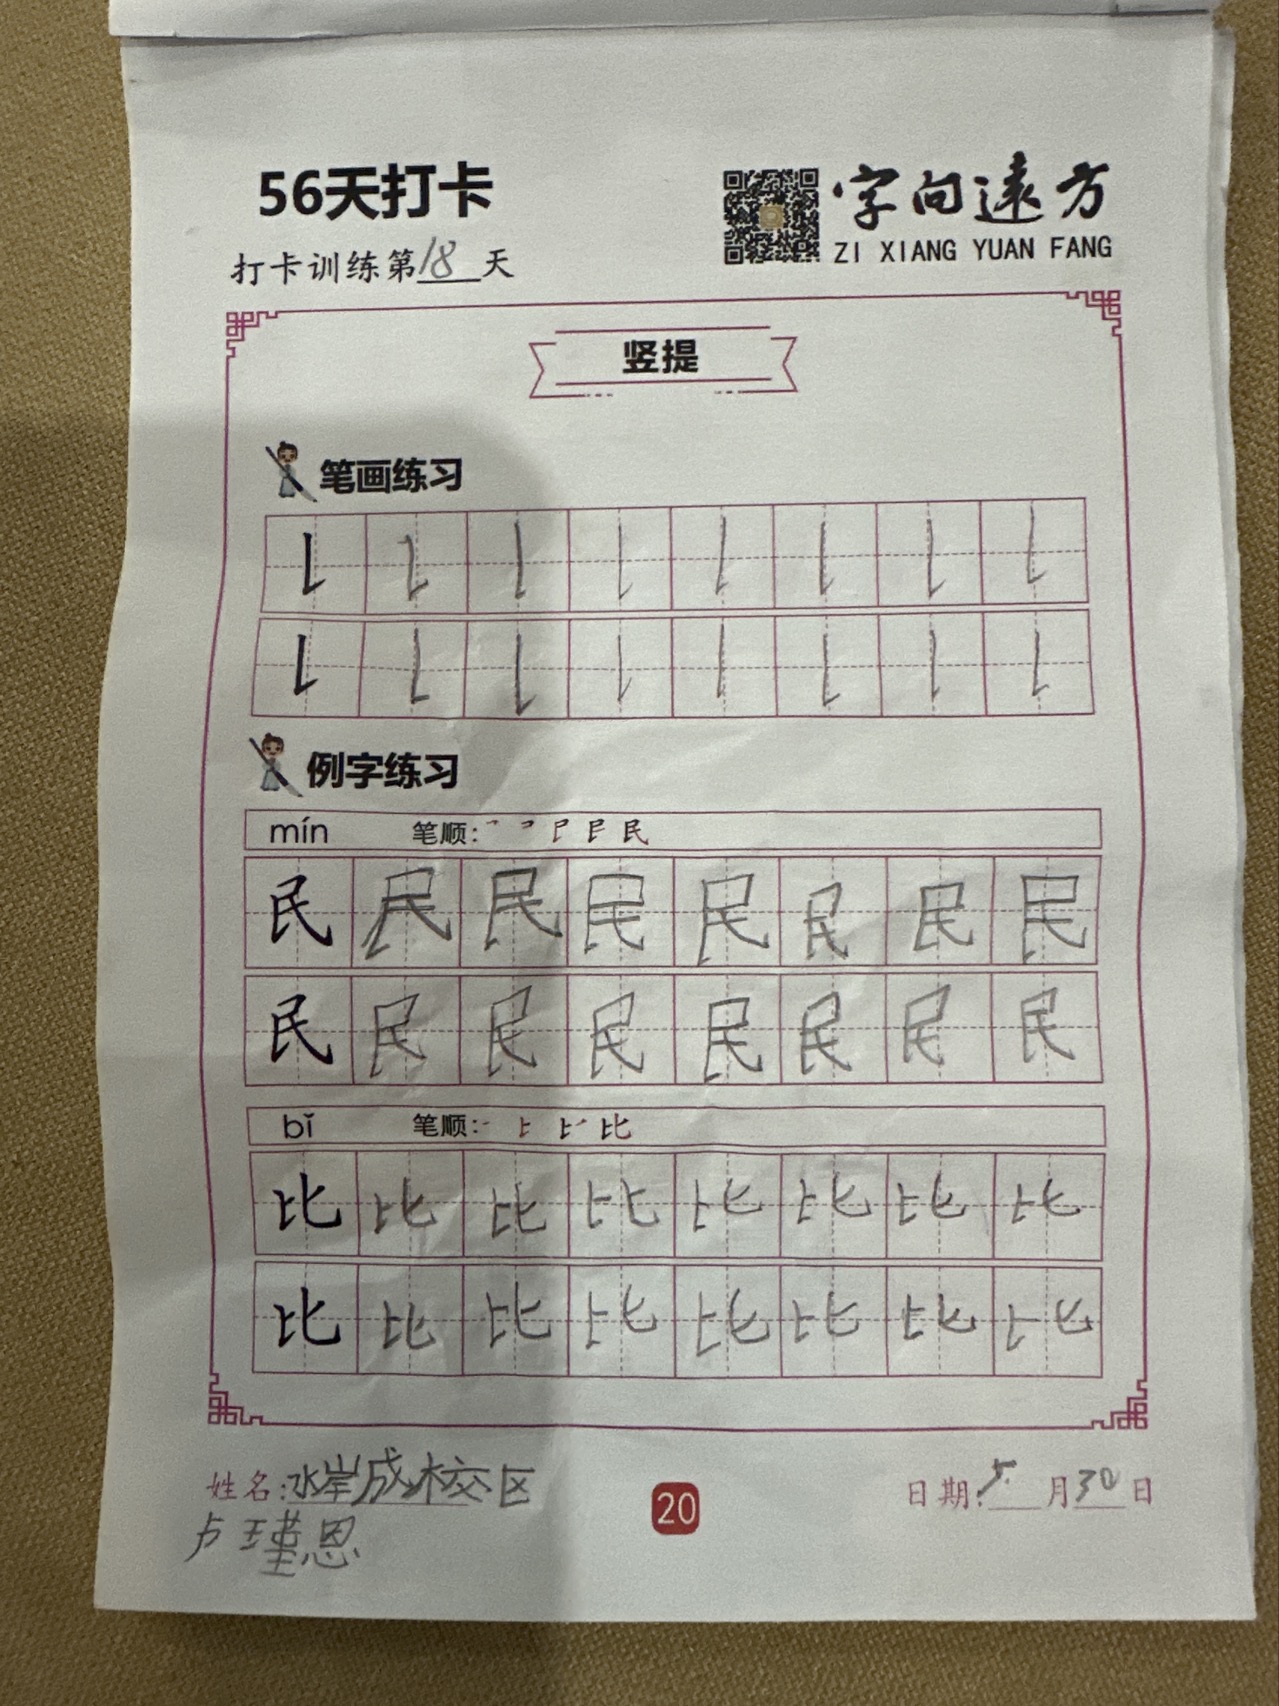 56天打卡
字向遠方
ZI XIANG YUAN FANG
打卡训练第18天
竖提
笔画练习
例字练习
mín 笔顺: 民
民 民 民 民 民 民 民 民
民 民 民 民 民 民 民 民
bǐ 笔顺: 比
比 比 比 比 比 比 比 比
比 比 比 比 比 比 比 比
姓名:水岸成校区
卢瑾恩
20
日期:5月30日